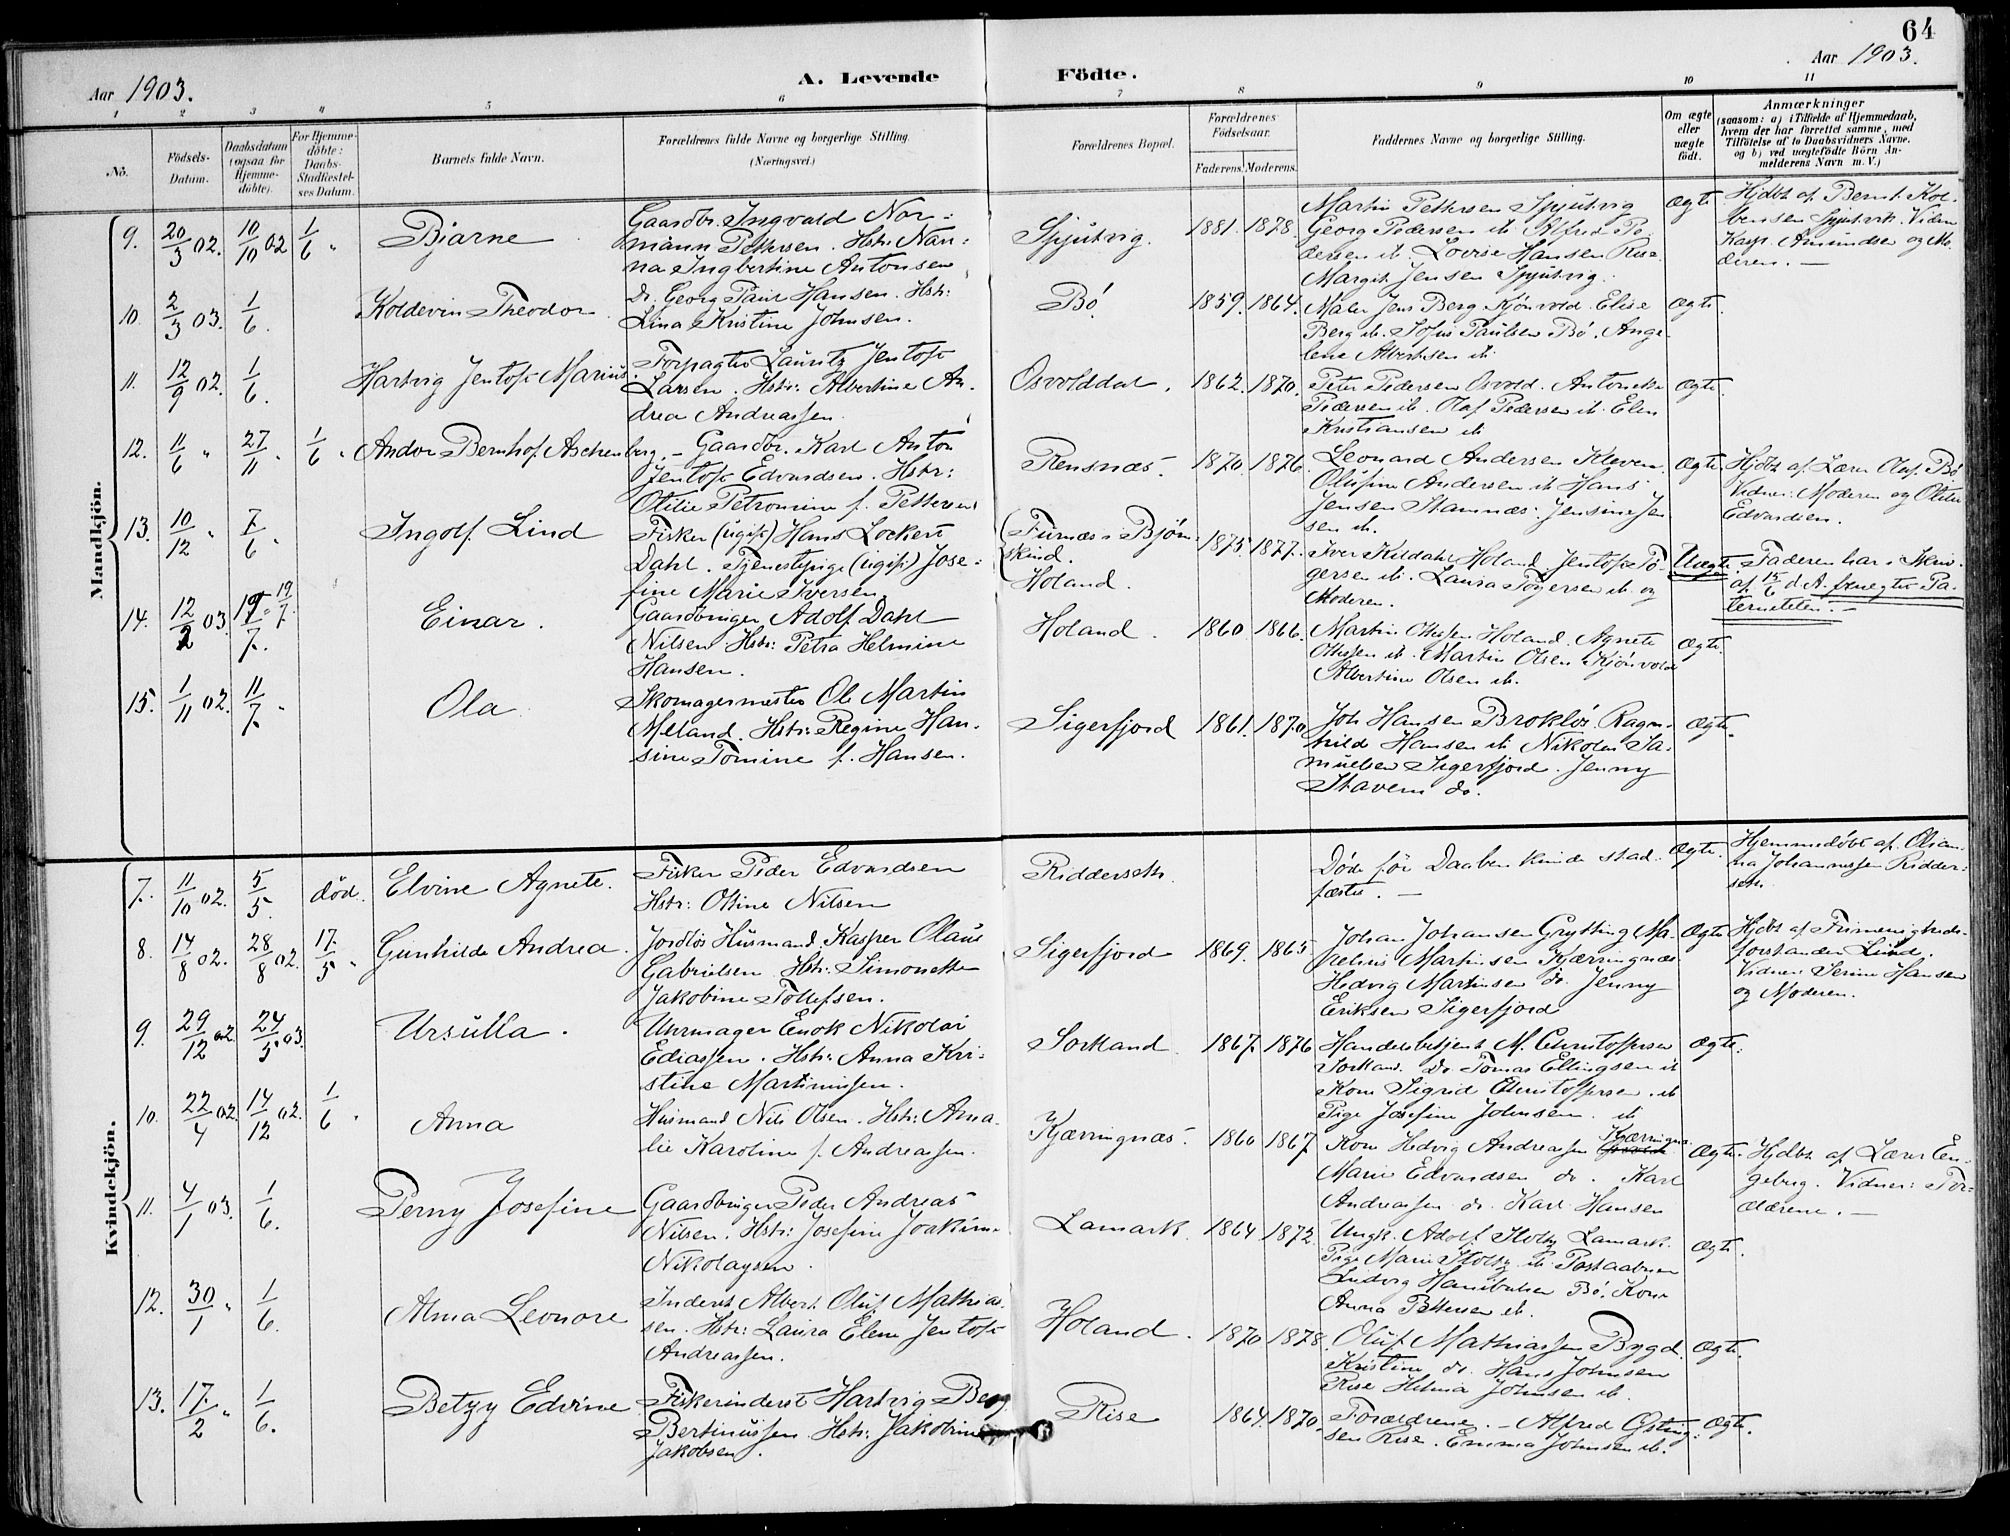 64
Aar 1903.
A. Levende Födte.
Aar 1903.
1 2 3 4 5 6 7 8 9 10 11
No.
Födsels-Datum.
Daabsdatum (ogsaa for Hjemme-döbte).
For Hjemme-döbte: Daabs-Stadfæstel-ses Datum.
Barnets fulde Navn.
Forældrenes fulde Navne og borgerlige Stilling (Næringsvei.)
Forældrenes Bopæl.
Forældrenes Födselsaar.
Faderens. Moderens.
Faddernes Navne og borgerlige Stilling.
Om ægte eller uægte födt.
Anmærkninger (saasom: a) i Tilfælde af Hjemmedaab, hvem der har forrettet samme, med Tilföielse af to Daabsvidners Navne, og b) ved uægtefödte Börn Anmelderens Navn m. V.)
Mandkjön.
9. 20/3 02. 10/10 02 1/6 "
Bjarne
Gaardbr. Ingvald Nor-
mann Pettersen. Hstr: Nan-
na Ingbertine Antonsen
Spjutvig. 1881. 1878.
Martin Pettersen Spjutvig
Georg Pedersen ib. Alfred Pe-
dersen ib. Lovise Hansen Rise.
Margit Jensen Spjutvig.
Ægte
Hjdbt af Bernt Kol-
bensen Spjutvik. Vidner
Kasp. Amundsen og Mo-
deren. —
10. 2/3 03. 1/6.
Koldevin Theodor
Do. Georg Paul Hansen. Hstr:
Lina Kristine Johnsen.
Bö. 1859. 1864.
Maler Jens Berg Kjönvold. Elise
Berg ib. Sofus Paulsen Bö. Ange-
lene Albertsen ib.
Ægte
11. 12/9 02. 1/6.
Hartvig Jentoft Marius.
Forpagter Lauritz Jentoft
Larsen. Hstr: Albertine An-
drea Andreassen.
Osvolddal. 1862. 1870.
Peter Pedersen Osvold. Antonette
Pedersen ib. Olaf Pedersen ib. Elen
Kristiansen ib
Ægte
12. 11/6 " 27/11 " 1/6 "
Andor Bernhof Aschenberg. – Gaardbr. Karl Anton
Jentoft Edvardsen. Hstr:
Otilie Petromine f. Pettersen
Rensnæs. 1870. 1876.
Leonard Andersen Kleven.
Olufine Andersen ib Hans
Jensen Stamnæs. Jensine Jen-
sen ib.
Ægte.
Hjdbt af Lærer Olaf. Bö
Vidner: Moderen og Otilie
Edvardsen.
13. 10/12 " 7/6 "
Ingolf Lind
Fisker (ugift) Hans Lockert
Dahl. Tjenestepige (ugift) Jose-
fine Marie Iversen.
(Furnæs i Bjørn-
skind.
Holand.
1875. 1877.
Iver Kildahl Holand. Jentoft To-
gersen ib. Laura Togersen ib og
Moderen.
Uægte
Faderen har i Skriv.
af 15/6 d. A. frenegter Pa-
terniteten. —
14. 12/2 03. 19/7. 19/7.
Einar.
Gaardbruger Adolf Dahl
Nilsen Hstr: Petra Helmine
Hansen.
Holand. 1860 1866.
Martin Ottesen Holand. Agnete
Ottesen ib. Martin Olsen Kjönvold
Albertine Olsen ib.
Ægte.
15. 1/11 02. 11/7. "
Ola
Skomagermester Ole Martin
Meland. Hstr: Regine Han-
sine Tomine f. Hansen.
Sigerfjord 1861. 1870.
Joh Hansen Broklös. Ragn-
hild Hansen ib Nikolai Sa-
muelsen Sigerfjord. Jenny
Stavem do.
Ægte.
Kvindekjön.
7. 11/10 02. 5/5. död.
Elvine Agnete.
Fisker Peder Edvardsen
Hstr: Ottine Nilsen
Riddersett.
Döde för Daaben kunde stad-
fæstes. —
Ægte.
Hjemmedöbt af Olian-
na Johannessen Ridder-
sett.
8. 14/8 02. 28/8 02. 17/5 "
Gunhilde Andrea.
Jordlös Husmand Kasper Olaus
Gabrielsen. Hstr: Simonette
Jakobine Tollefsen.
Sigerfjord 1869. 1865.
Johan Johansen Grytting, Ma-
Martinsen Kjærringnæs
Hedvig Martinsen do. Jenny
Eriksen Sigerfjord
Ægte
Hjdbt af Fumenigheds-
forstander Lund.
Vidner Serine Hansen
og Moderen.
9. 29/12 02. 24/5 03.
Ursulla.
Uhrmager Enok Nikolai
Ediassen. Hstr: Anna Kri-
stine Martinussen.
Sortland. 1867. 1876
Handelsbetjent M. Christoffersen
Sortland. Do Tomas Ellingsen ib
Kone Sigrid Christoffersen. ib
Pige Josefine Johnsen. ib
Ægte.
10. 22/4 02. 14/12 02. 1/6 "
Anna
Husmand Nils Olsen. Hstr: Ama-
lie Karoline f. Andreassen.
Kjærringnæs. 1860 1867.
Kone Hedvig Andreassen Kjærringnæs
Marie Edvardsen do. Karl
Andreassen do. Karl Hansen
Ægte.
Hjdbt af Lærer En-
geberg. Vidner: For-
ældrene. —
11. 4/1 03. 1/6.
Perny Josefine
Gaardbruger Peder Andreas
Nilsen. Hstr: Josefine Joakime
Nikolaysen.
Lamark 1864 1872.
Ungk. Adolf Holtz Lamark.
Pige Marie Holtz ib. Postaabner
Ludvig Hanibalsen Bö. Kone
Anna Pettersen ib.
Ægte.
12. 30/1 " 1/6.
Alma Leonore
Inderst Albert Oluf Mathia-
sen. Hstr: Laura Elene Jentoft
Andreassen.
Holand. 1870 1878.
Oluf Mathiassen Bygd.
Kristine do. Hans Johnsen
Rise Helma Johnsen ib.
Ægte.
13. 17/2 " 1/6.
Betzy Edvine
Fiskerinderst Hartvig Berg
Bertinussen. Hstr: Jakobine
Jakobsen.
Rise 1864. 1870.
Forældrene. – Alfred Östing-
sen Rise. Emma Johnsen ib.
Ægte.